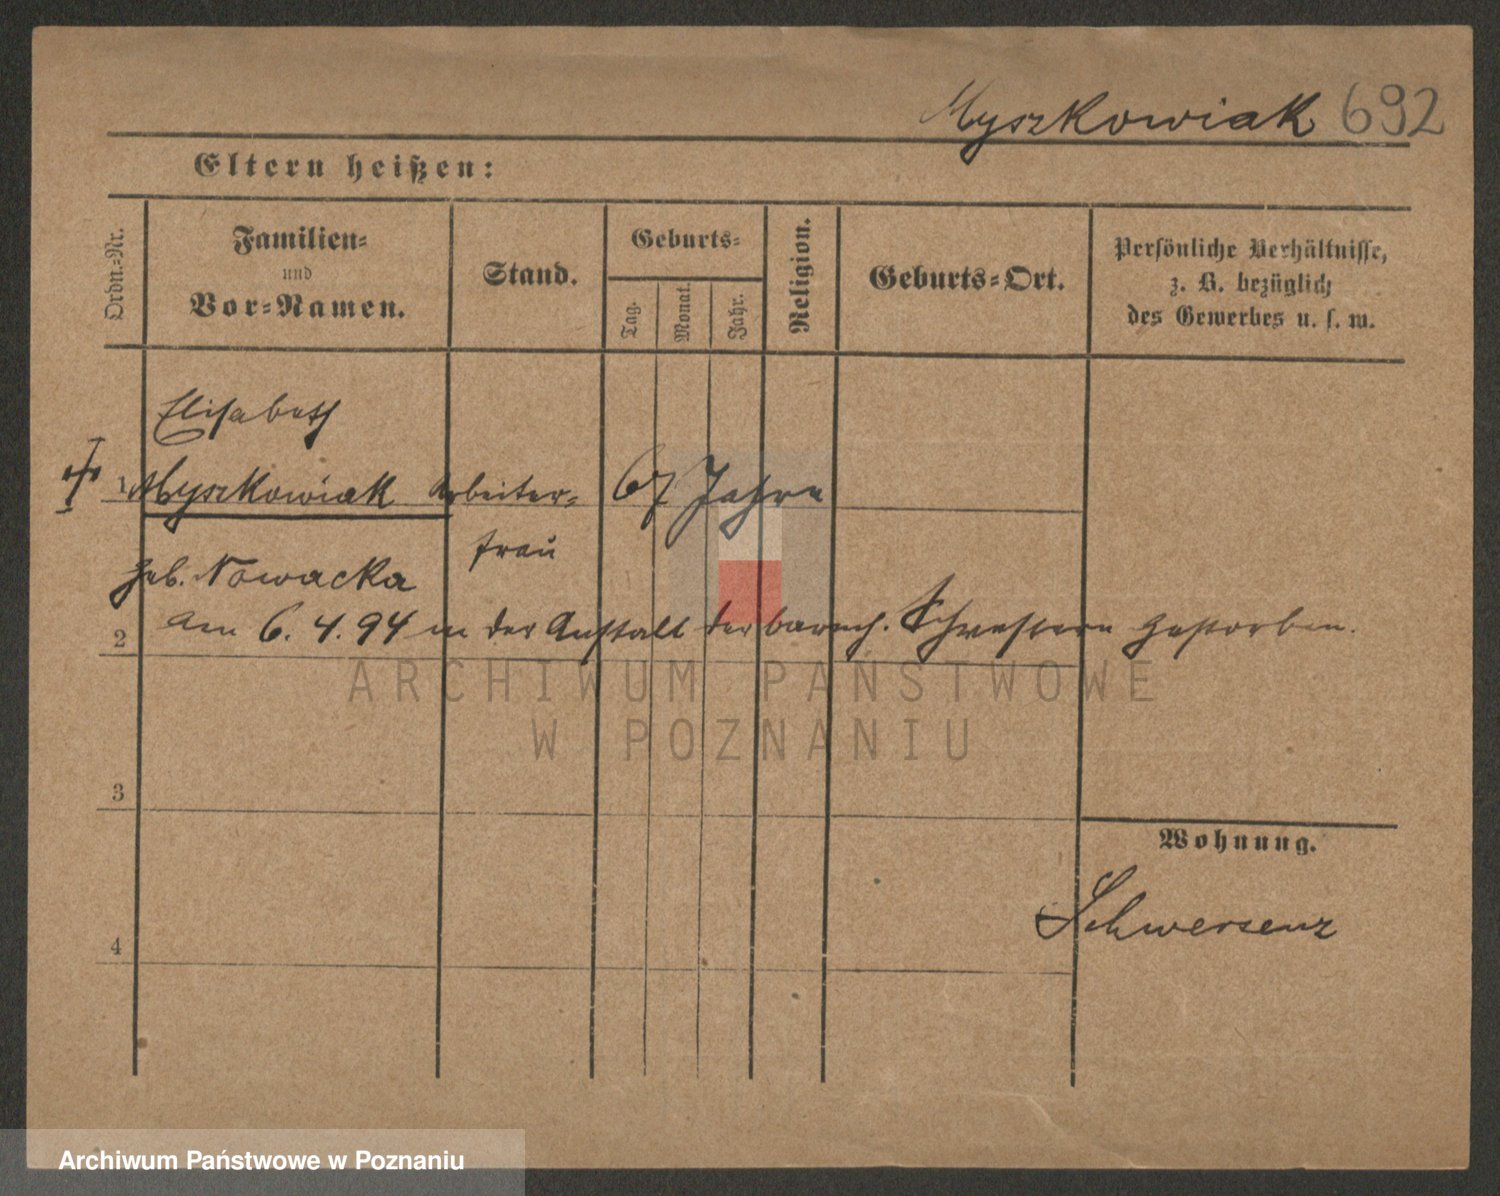 Myszkowiak 692
Eltern heißen:
Ordn.-Nr.
Familien-
und
Vor-Namen.
Stand.
Geburts-
Tag.
Monat.
Jahr.
Religion.
Geburts-Ort.
Persönliche Verhältnisse,
z. B. bezüglich
des Gewerbes u. s. w.
Elisabeth
1 Myszkowiak Arbeiter- 67 Jahre
frau
geb. Nowacka
2 am 6. 4. 94 in der Anstalt der barmh. Schwestern gestorben.
ARCHIWUM PAŃSTWOWE
W POZNANIU
3
Wohnung.
Schwersenz
4
Archiwum Państwowe w Poznaniu